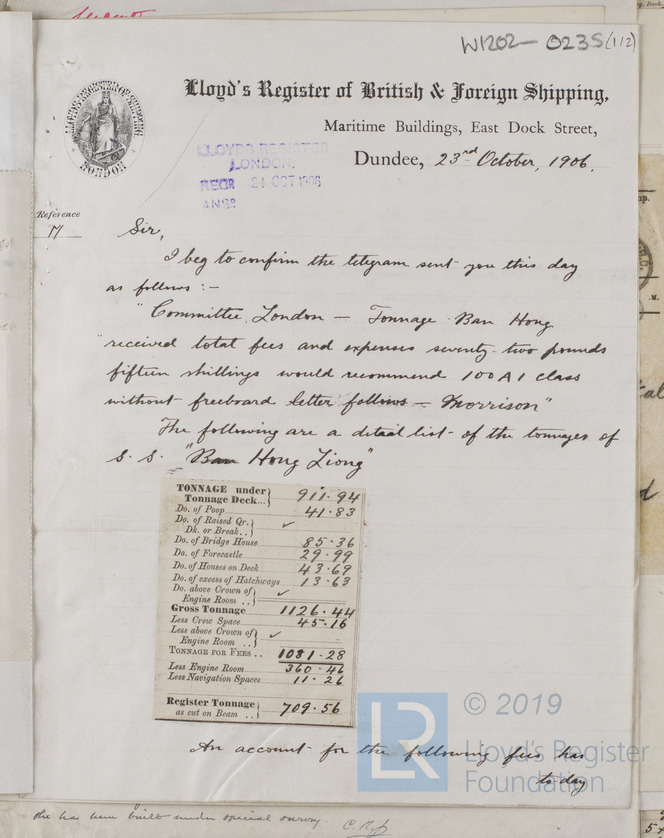 W1202-0235(1/2)
Lloyd's Register of British & Foreign Shipping,
Maritime Buildings, East Dock Street,
Dundee, 23rd October, 1906.
LLOYD'S REGISTER
LONDON.
RECD 24 OCT 1906
ANSD
LONDON
Reference
M
Sir,
I beg to confirm the telegram sent you this day
as follows:-
"Committee, London - Tonnage Ban Hong
"received total fees and expenses seventy-two pounds
fifteen shillings would recommend 100A1 class
without freeboard letter follows - Morrison"
The following are a detail list of the tonnages of
S.S. "Ban Hong Liong"
TONNAGE under
Tonnage Deck... } 911.94
Do. of Poop 41.83
Do. of Raised Qr.
Dk. or Break.. } ✓
Do. of Bridge House 85.36
Do. of Forecastle 29.99
Do. of Houses on Deck 43.69
Do. of excess of Hatchways 13.63
Do. above Crown of
Engine Room .. } ✓
Gross Tonnage 1126.44
Less Crew Space 45.16
Less above Crown of
Engine Room .. } ✓
TONNAGE FOR FEES .. 1081.28
Less Engine Room 360.46
Less Navigation Spaces 11.26
Register Tonnage
as cut on Beam .. } 709.56
An account for the following fees has
to day
LR
© 2019
Lloyd's Register
Foundation
She has been built under special survey.